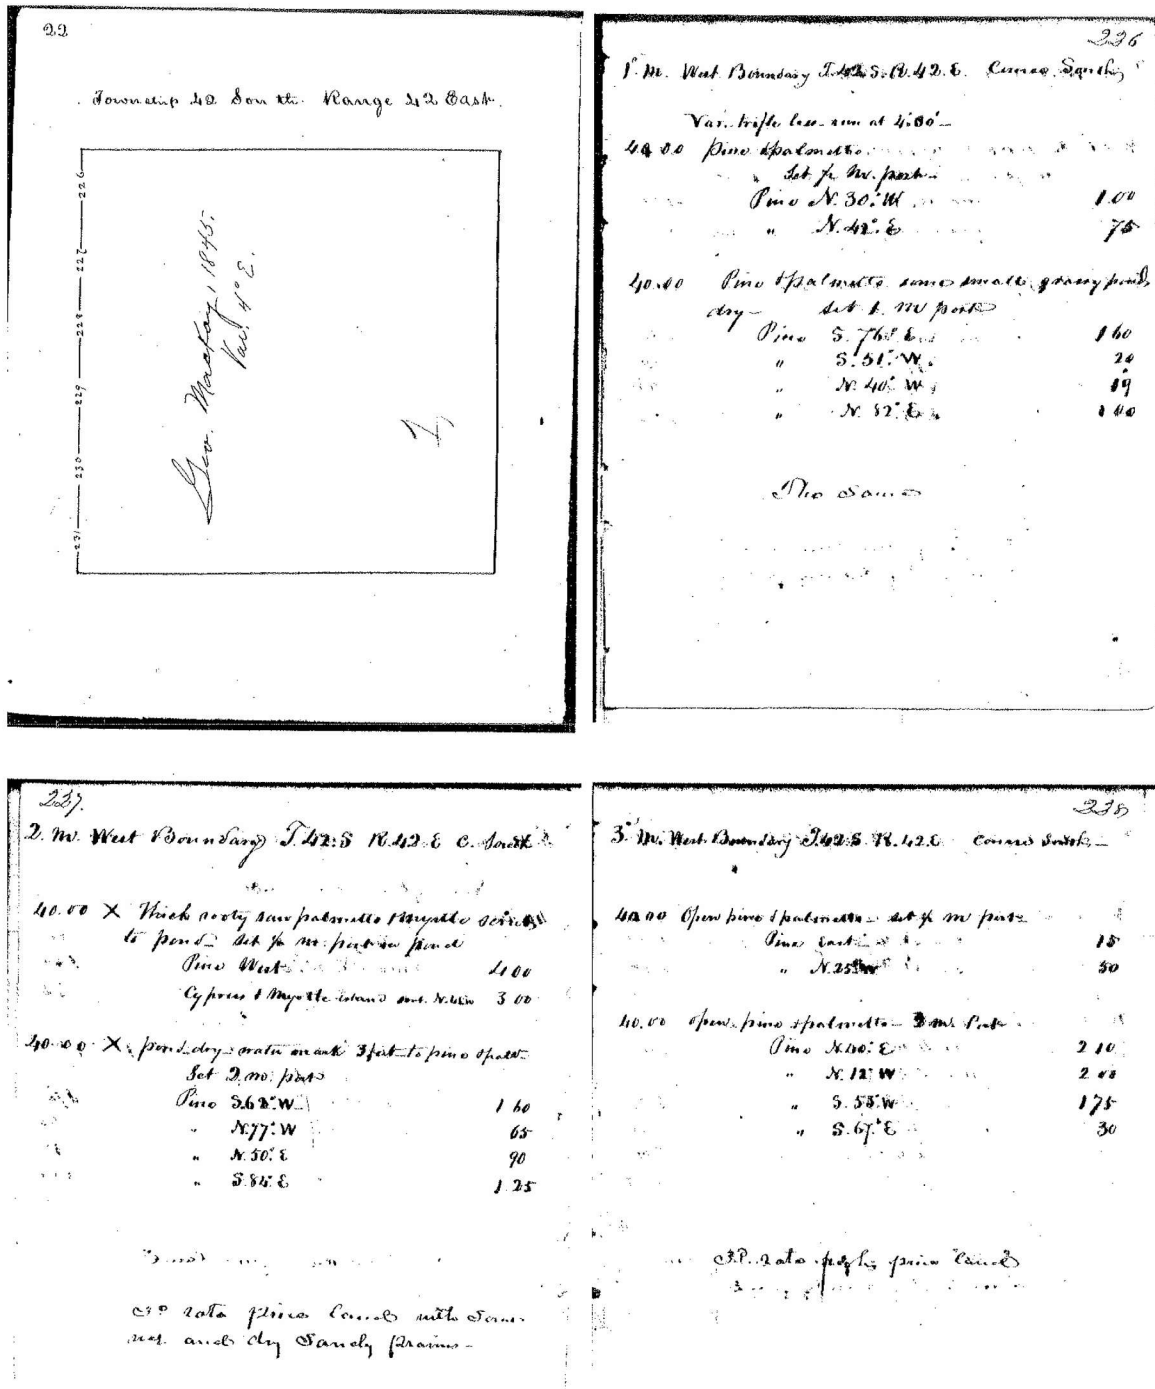 22
Township 42 South. Range 42 East.
226
227
228
229
230
231
Geo. Mackay, 1845.
Var. 4° E.
226
1st M. West Boundary T.42.S. R.42.E. Course South
Var. trifle less run at 4°00'
40.00 Pine & palmetto
Set ½ M. post
Pine N. 30° W 1.00
" N. 42° E 75
40.00 Pine & palmetto some small grassy ponds
dry - Set 1. M post
Pine S. 76° E 1 60
" S. 51° W. 20
" N. 40° W 19
" N. 82° E 1 00
The Same
227.
2. M. West Boundary T.42.S R.42.E C. South
40.00 X Thick rooty saw palmetto & myrtle
to pond - Set ½ m. post in pond
Pine West 4 00
Cypress & Myrtle island 3 00
40.00 X pond dry - water mark 3 feet to pine & palt.
Set 2. m. post
Pine S.62° W 1 60
" N.77° W 65
" N.50° E 90
" S.84° E 1.25
3d rate pine land with some
and dry Sandy prairies -
228
3d M. West Boundary T.42.S. R.42.E Course South -
40.00 Open pine & palmetto - set ½ m post
Pine East 15
" N.25° W 50
40.00 open pine & palmetto - 3 m. Post
Pine N.40° E 2 10
" N. 12° W 2 00
" S. 55° W 175
" S. 67° E 30
3d. rate pine land